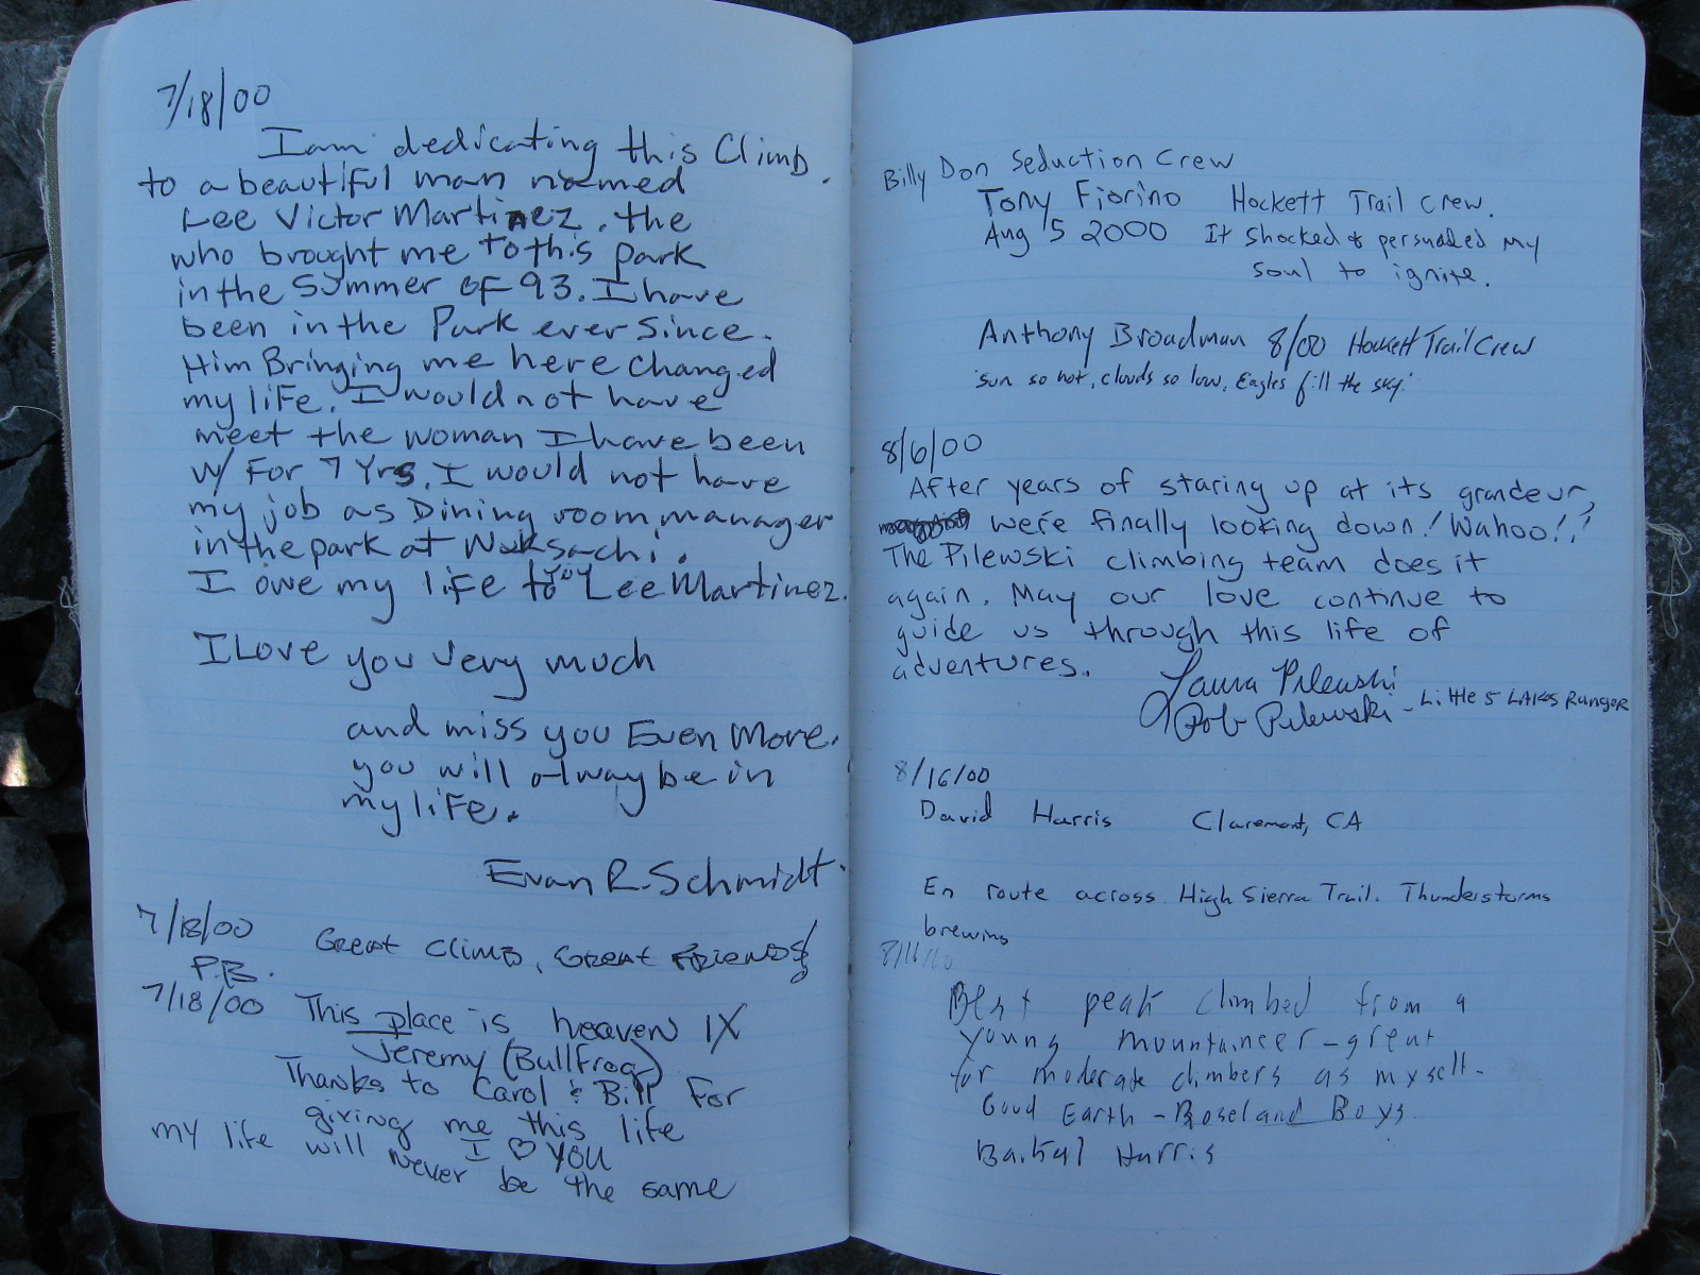 7/18/00
I am dedicating this Climb.
to a beautiful man named
Lee Victor Martinez. the
who brought me to this park
in the Summer of 93. I have
been in the Park ever since.
Him Bringing me here changed
my life. I would not have
meet the woman I have been
w/ For 7 Yrs. I would not have
my job as Dining room manager
in the park at Wuksachi.
I owe my life to you Lee Martinez.
I Love you very much
and miss you Even More.
you will alway be in
my life.
Evan R. Schmidt.
7/18/00 Great climb, Great Friends
P.B.
7/18/00 This place is heaven IX
Jeremy (BullFrog)
Thanks to Carol & Bill For
giving me this life
I ♡ YOU
my life will never be the same
Billy Don Seduction Crew
Tony Fiorino Hockett Trail Crew.
Aug 5 2000 It shocked & persuaded my
soul to ignite.
Anthony Broadman 8/00 Hockett Trail Crew
'sun so hot, clouds so low, Eagles fill the sky.'
8/6/00
After years of staring up at its grandeur,
we're finally looking down! Wahoo!!
The Pilewski climbing team does it
again. May our love continue to
guide us through this life of
adventures.
Laura Pilewski
Rob Pilewski - Little 5 Lakes Ranger
8/16/00
David Harris Claremont, CA
En route across High Sierra Trail. Thunderstorms
brewing
Best peak climbed from a
young mountaineer - great
for moderate climbers as myself.
Good Earth - Roseland Boys
Harris